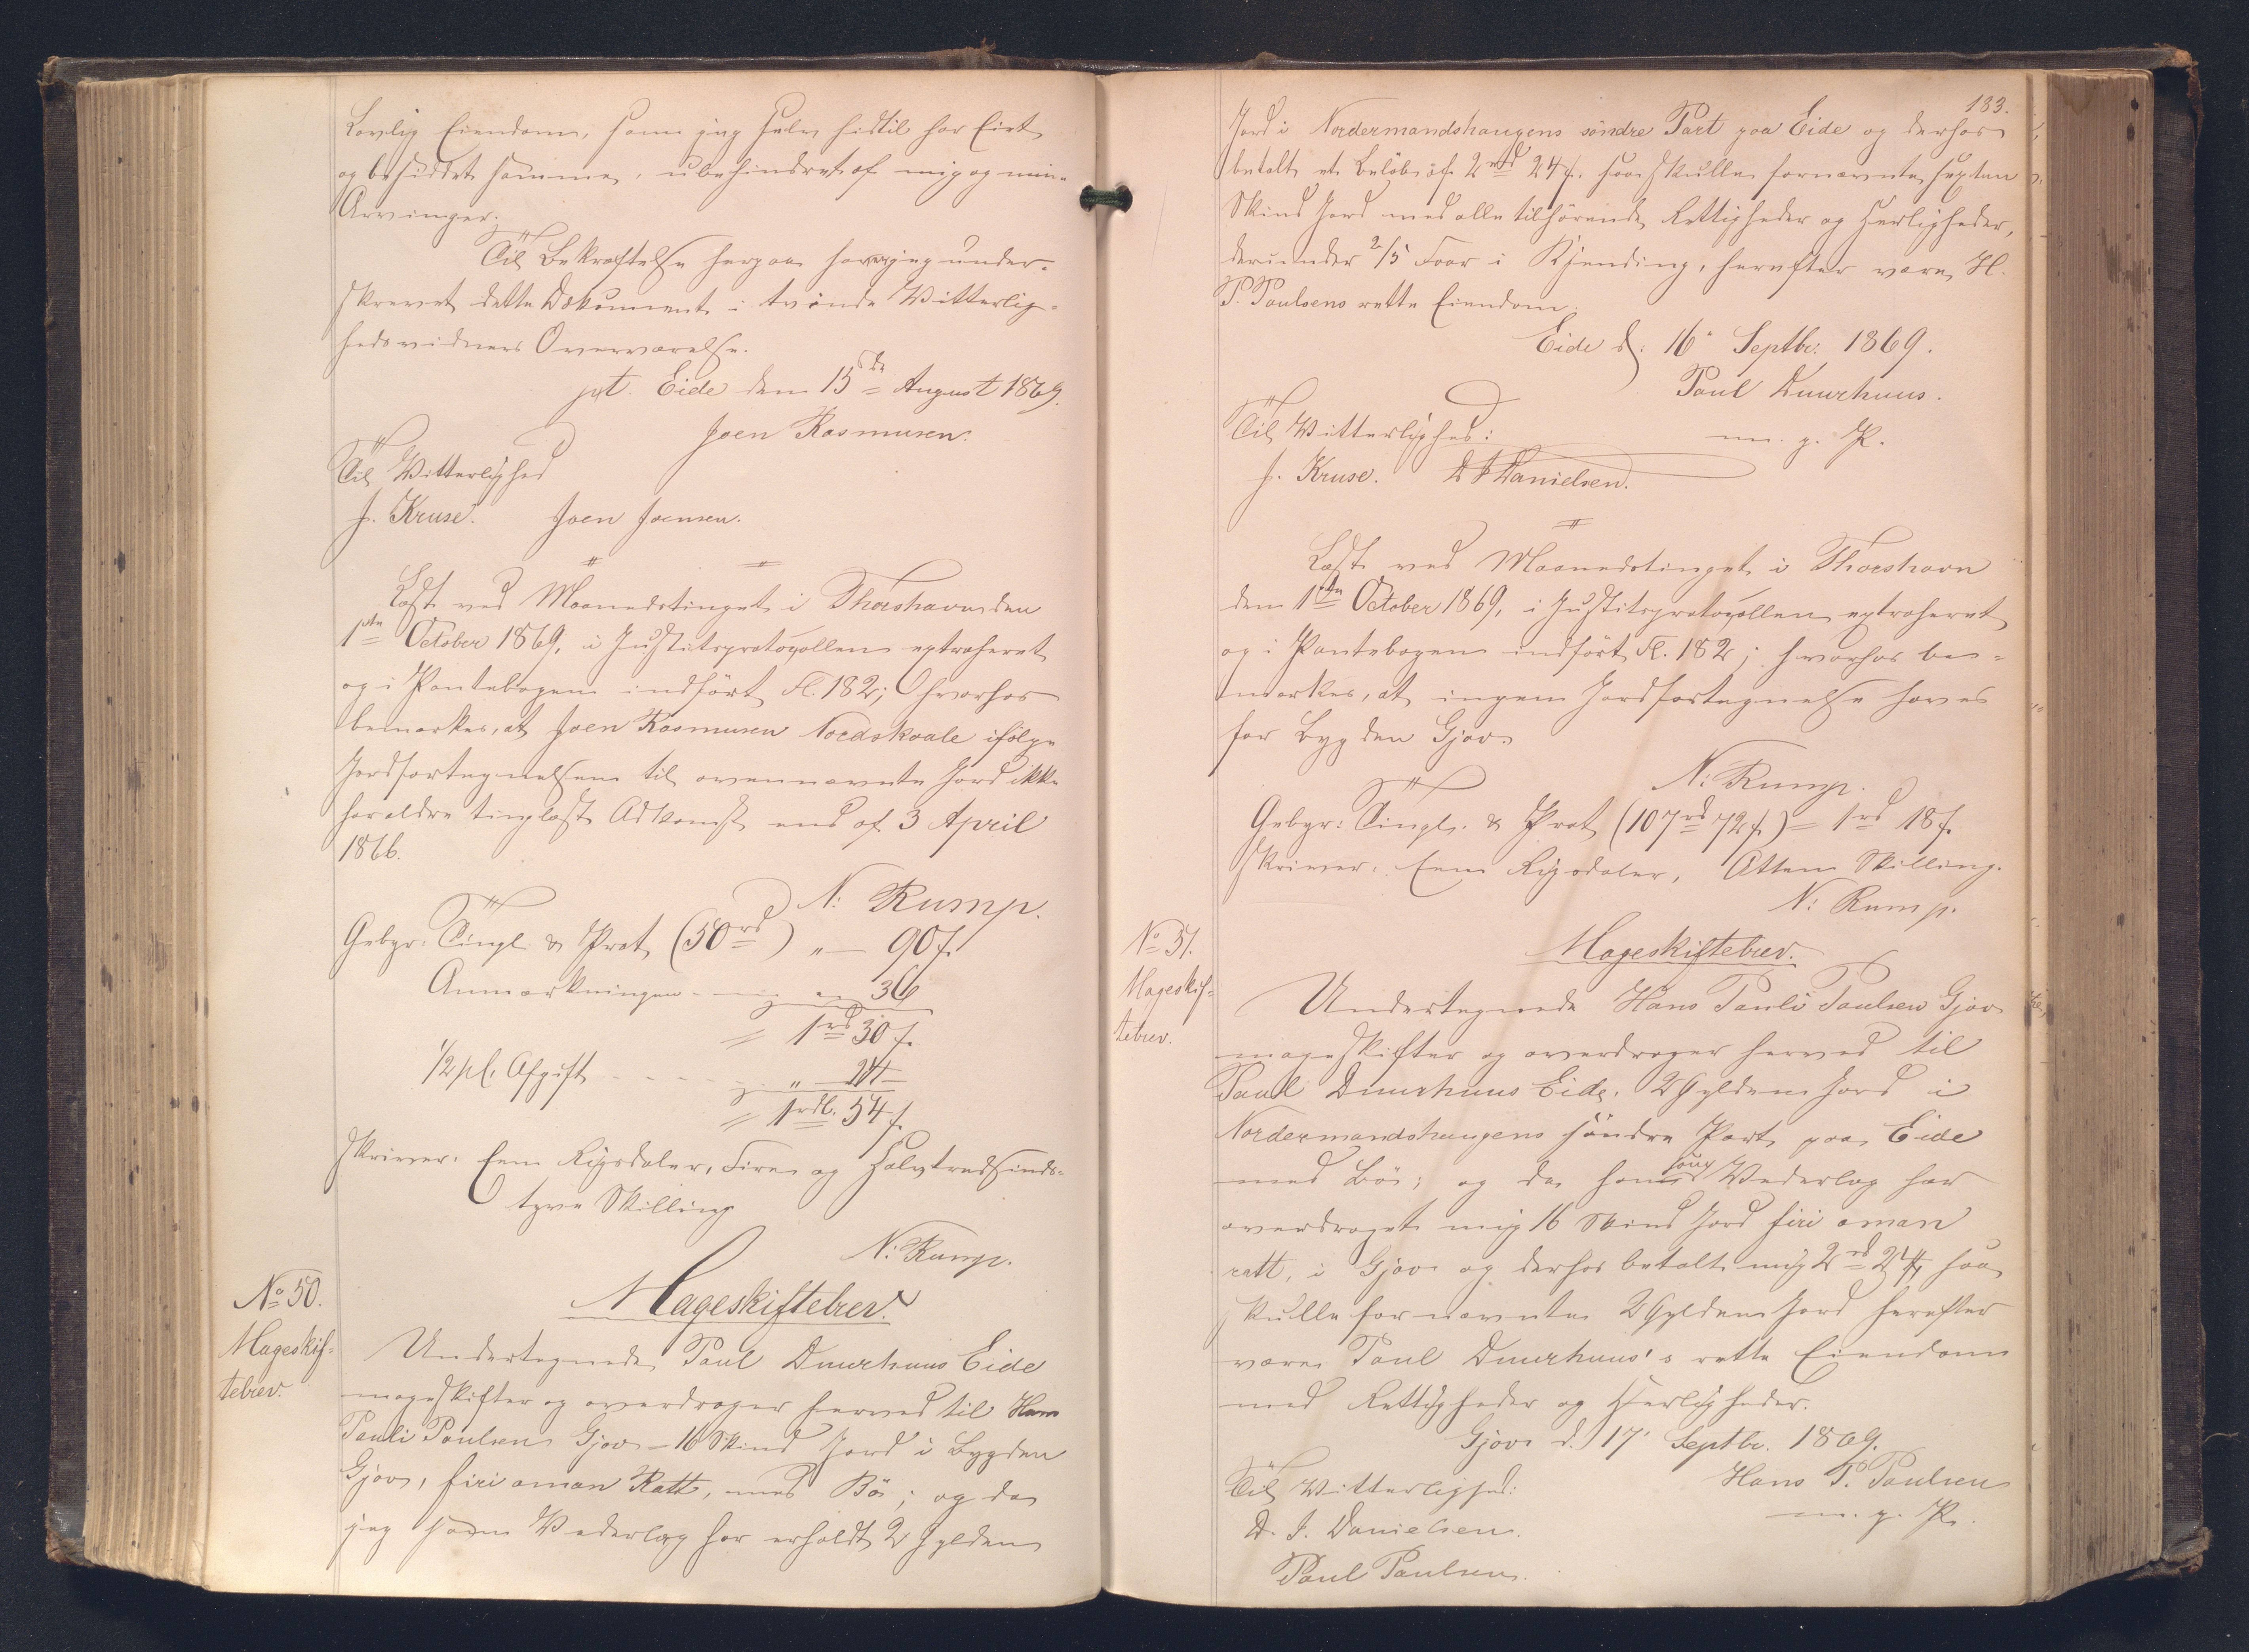 Lovlig Eiendom, som jeg selv hidtil har Eiet
og besiddet samme, ubehindret af mig og mine
Arvinger.
Til Bekræftelse herpaa haver jeg under-
skrevet dette Dokument i tvende Vitterlig-
hedsvidners Overværelse.
pt. Eide den 15de August 1869.
Joen Rasmusen.
Til Vitterlighed
J. Kruse. Joen Joensen.
Læst ved Maanedstinget i Thorshavn den
1ste October 1869, i Justitsprotocollen extraheret
og i Pantebogen indført Fl. 182; hvorhos
bemærkes, at Joen Rasmusen Nordskaale ifølge
Jordfortegnelsen til ovennævnte Jord ikke
har ældre tinglæst Adkomst end af 3 April
1866.
N: Rump.
Gebyr: Tingl. & Prot. (50rd) " — 90 f.
Anmærkningen - " — 36
= 1rd 30 f.
1/2 pC. Afgift - - - - " — 24
= 1rdl. 54 f.
skriver: Een Rigsdaler, Fire og Halvtredsinds-
tyve Skilling
N: Rump.
No 50.
Mageskif-
tebrev.
Mageskiftebrev.
Undertegnede Paul Duurhuus Eide
mageskifter og overdrager herved til Hans
Pauli Poulsen Gjov - 16 Skind Jord i Bygden
Gjov, firi oman Ratt, med Bö; og da
jeg som Vederlag har erholdt 2 Gylden
183.
Jord i Nordermandshaugens söndre Part paa Eide og derhos
betalt et Beløb af 2rd 24 f. saa skulle fornævnte sexten
Skind Jord med alle tilhørende Rettigheder og Herligheder,
derunder 2/5 Faar i Kjending, herefter være H.
P. Poulsens rette Eiendom.
Eide d: 16 Septbr. 1869.
Paul Duurhuus.
Til Vitterlighed: m. p. P.
J. Kruse. D J Danielsen.
Læst ved Maanedstinget i Thorshavn
den 1ste October 1869, i Justitsprotocollen extraheret
og i Pantebogen indført Fl. 182; hvorhos be-
mærkes, at ingen Jordfortegnelse haves
for Bygden Gjov.
N: Rump.
Gebyr: Tingl. & Prot. (107rd 72 f.) = 1rd 18 f.
skriver: Een Rigsdaler, Atten Skilling.
N: Rump.
No 51.
Mageskif-
tebrev.
Mageskiftebrev.
Undertegnede Hans Pauli Poulsen Gjov
mageskifter og overdrager herved til
Paul Duurhuus Eide, 2 Gylden Jord i
Nordermandshaugens søndre Part paa Eide
med Bö; og da han som Vederlag har
overdraget mig 16 Skind Jord firi oman
ratt, i Gjov og derhos betalt mig 2rd 24 f. saa
skulle fornævnte 2 Gylden Jord herefter
være Paul Duurhuus's rette Eiendom
med Rettigheder og Herligheder.
Gjov d. 17 Septbr. 1869.
Til Vitterlighed: Hans P. Poulsen
D. J. Danielsen. m. p. P.
Paul Poulsen.